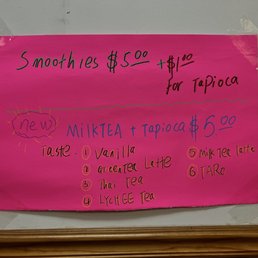 Smoothies $5.00 + $1.00
for Tapioca
new
MilkTEA + Tapioca $5.00
Taste. ① Vanilla
② GreenTea Latte
③ Thai Tea
④ LYCHEE Tea
⑤ Milk Tea Latte
⑥ TARO